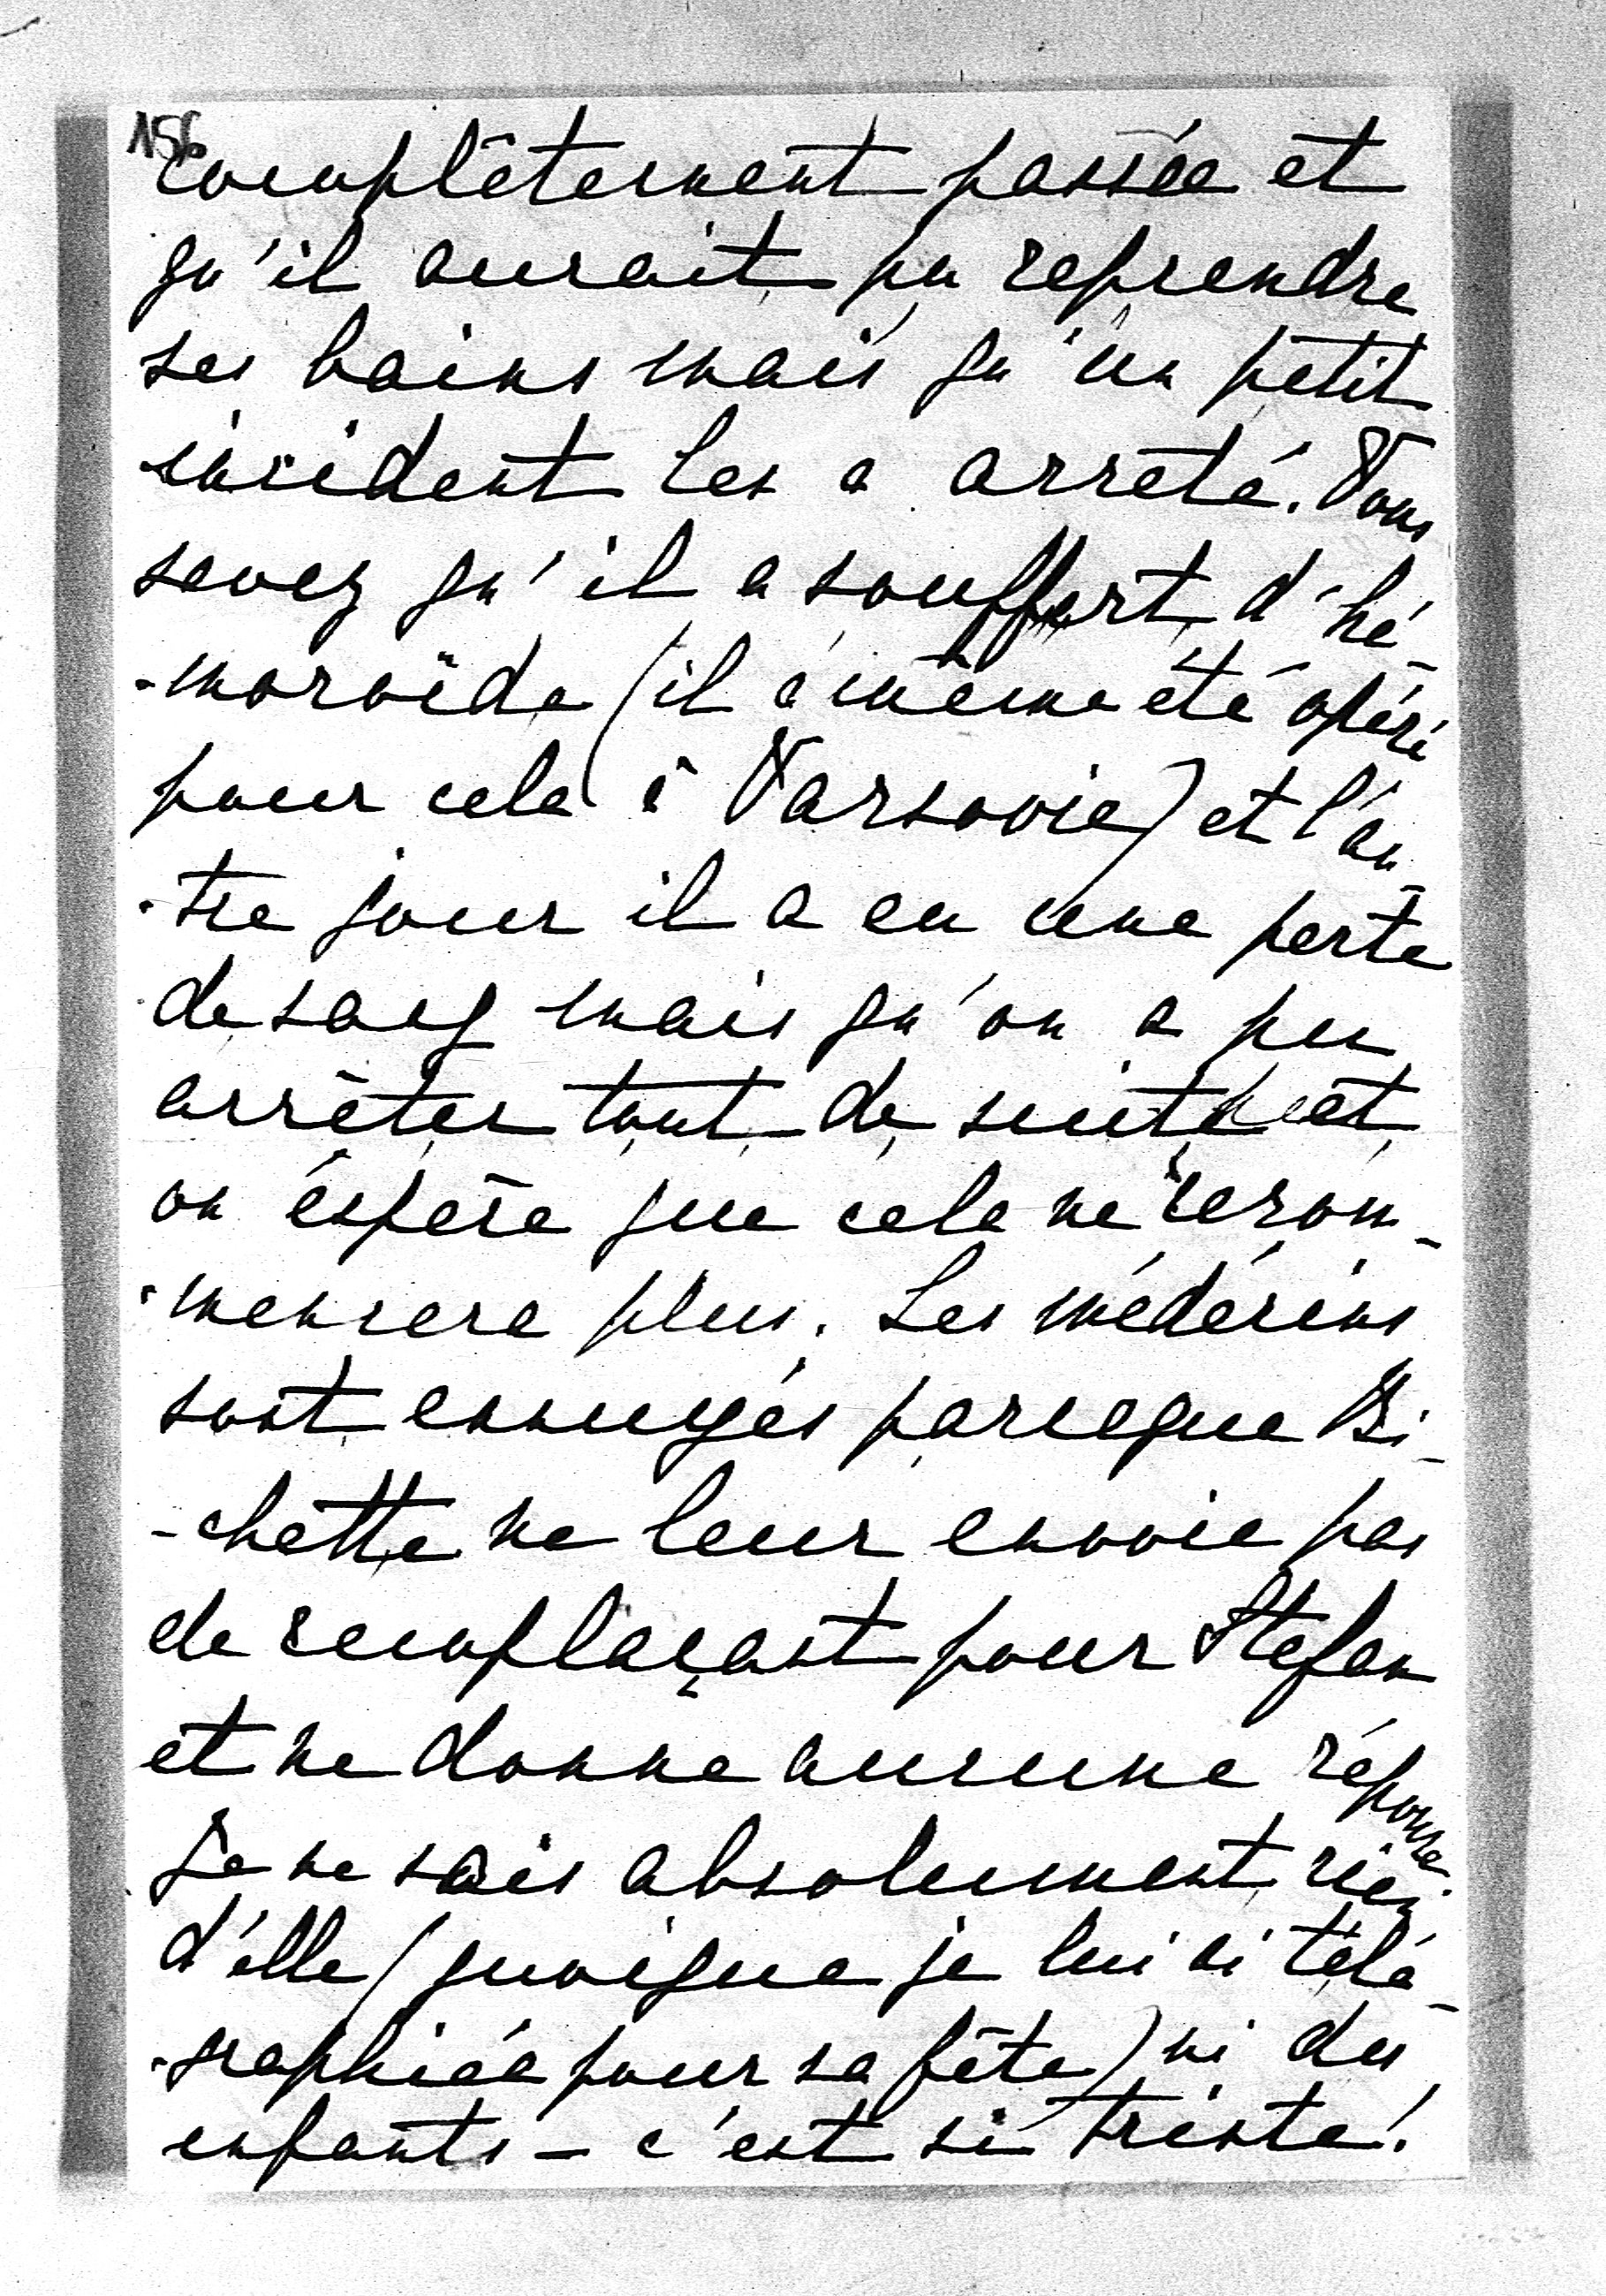 156
complètement passée et
qu'il aurait pu reprendre
ses bains mais qu'un petit
incident les a arrêté. Vous
savez qu'il a souffert d'hé-
-moroïde (il a même été opéré
pour cela à Varsovie) et l'au-
-tre jour il a eu une perte
de sang mais qu'on a pu
arrêter tout de suite et
on éspère que cela ne recom-
-mencera plus. Les médecins
sont ennuyés parceque Bi-
-chette ne leur envoie pas
de remplaçant pour Stefan
et ne donne aucune réponse.
Je ne sais absolument rien
d'elle (quoique je lui ai télé-
-graphiée pour sa fête) ni des
enfants – c'est si triste!